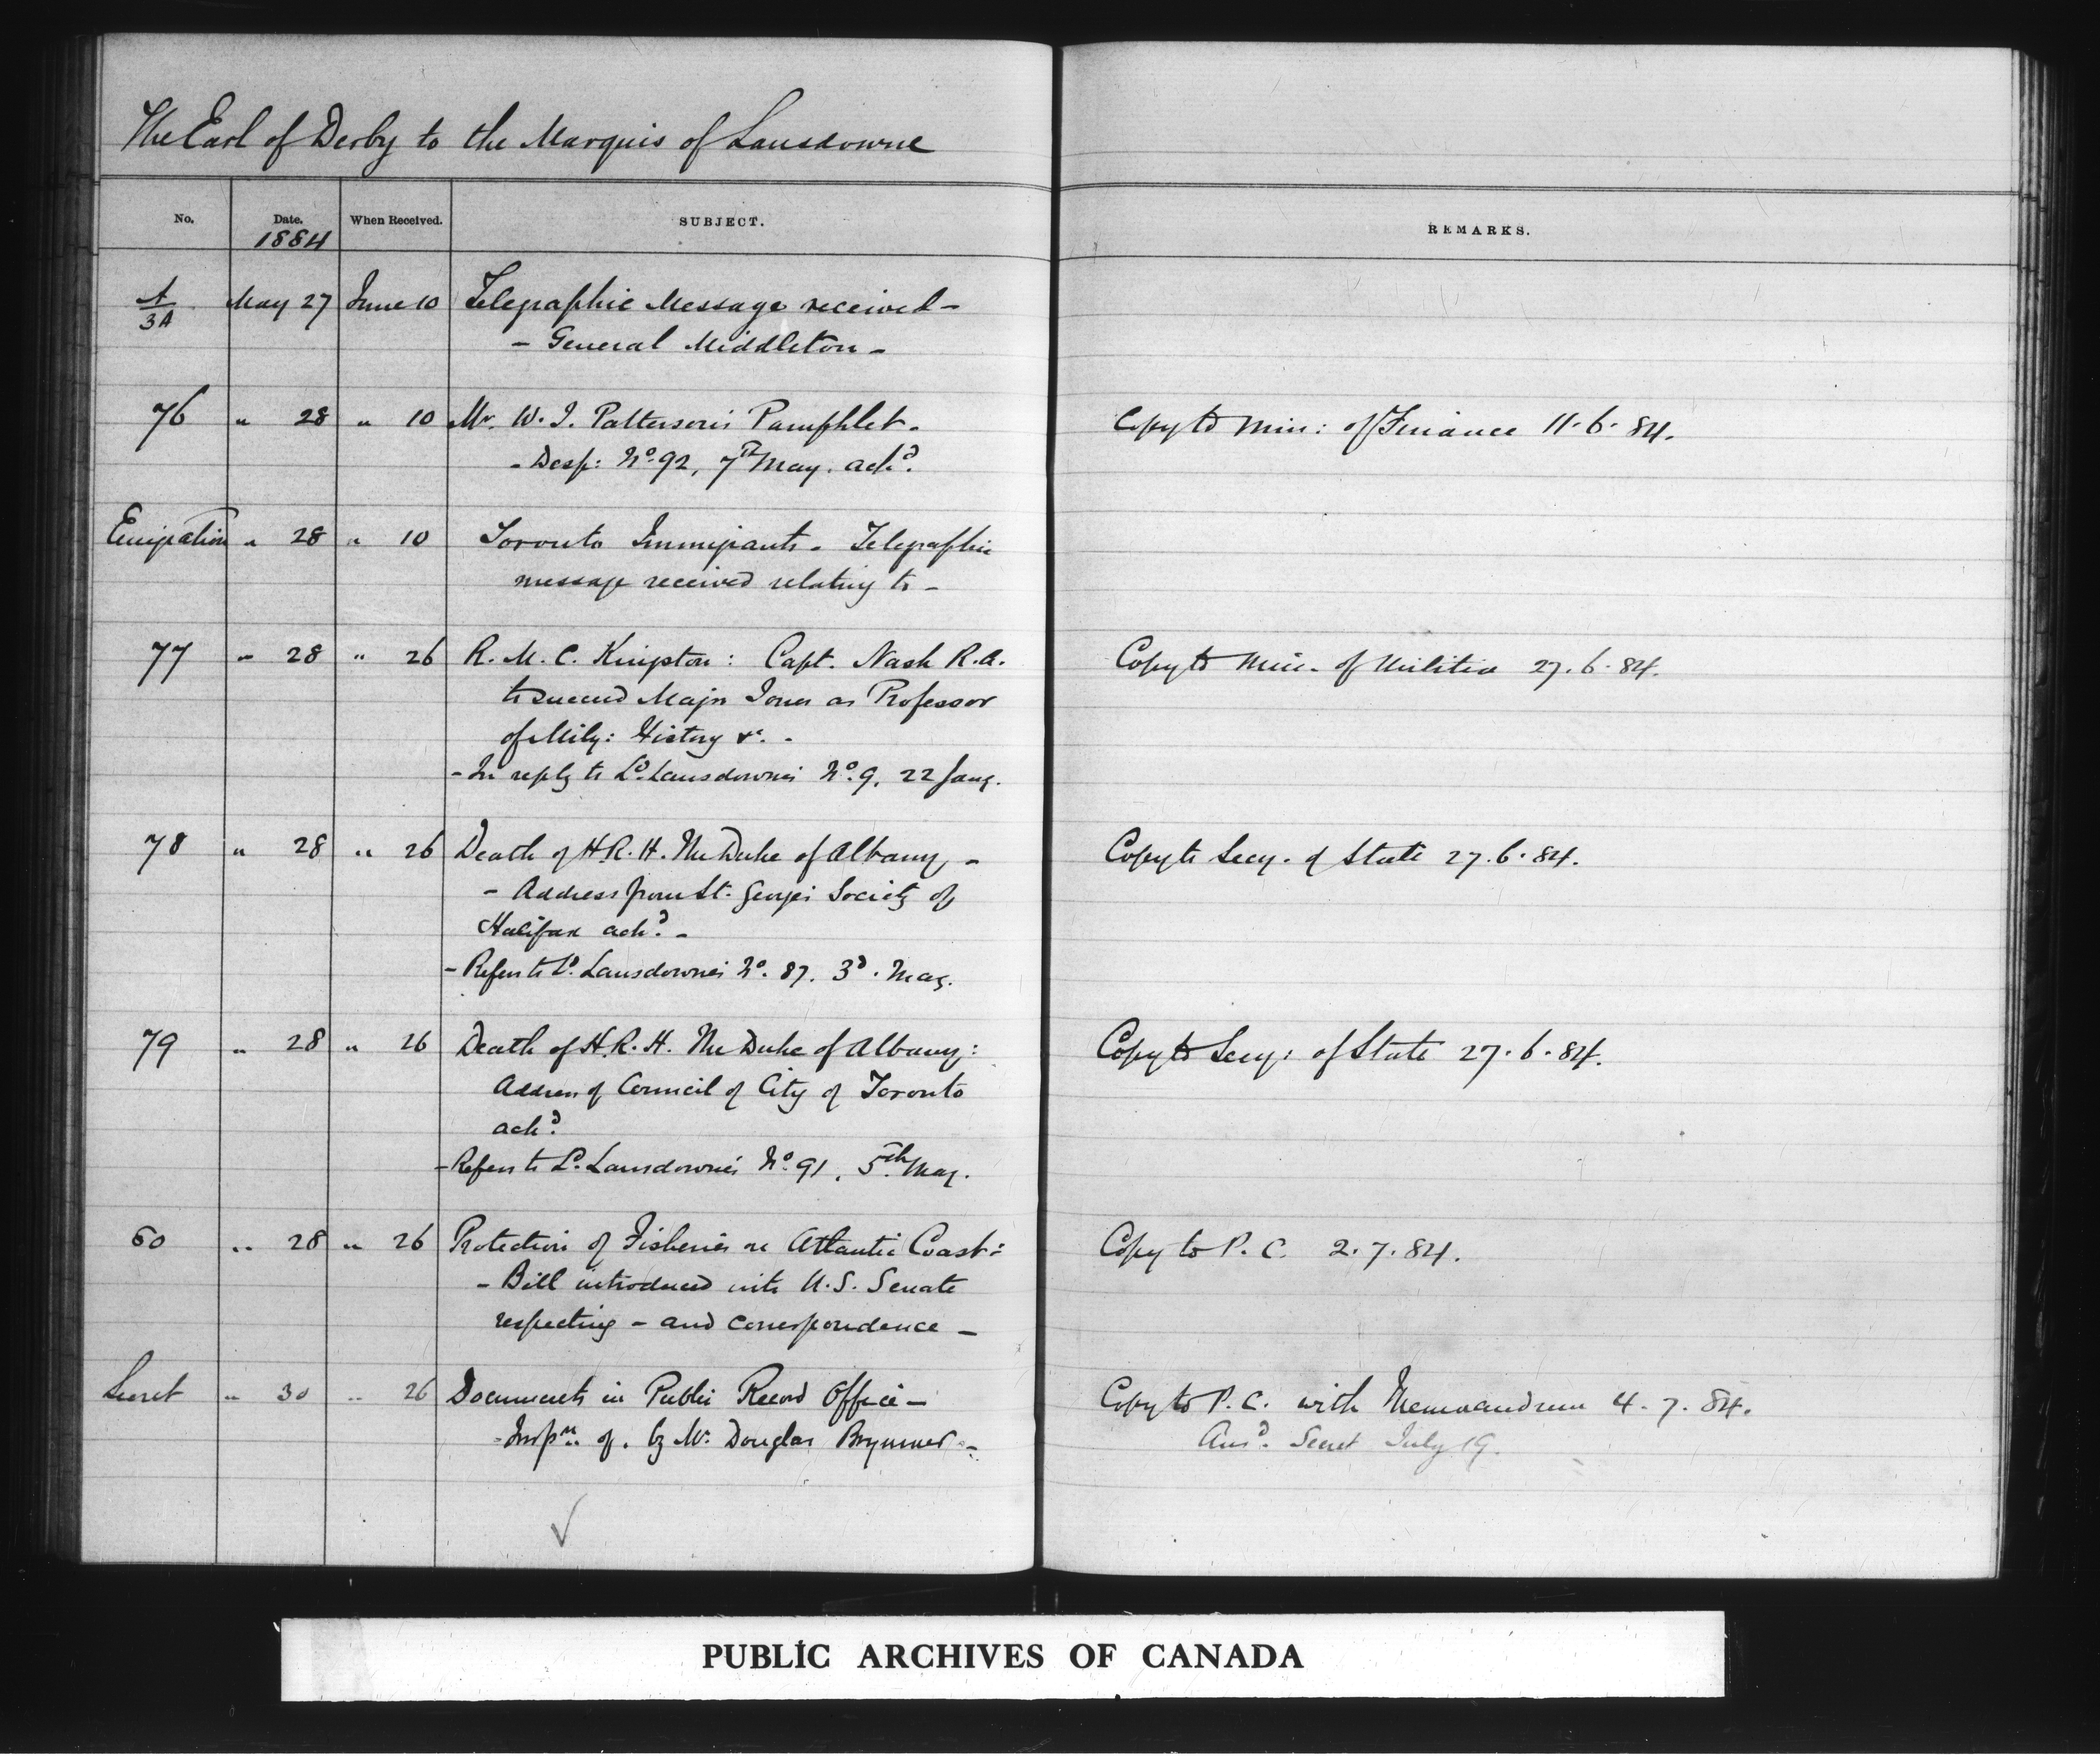 The Earl of Derby to the Marquis of Lansdowne
No. Date. When Received. SUBJECT. REMARKS.
1884
A/3A May 27 June 10 Telegraphic Message received -
- General Middleton -
76 " 28 " 10 Mr. W. J. Patterson's Pamphlet. Copy to Min: of Finance 11.6.84.
- Desp: No. 92, 7th May. ackd.
Emigration " 28 " 10 Toronto Immigrants - Telegraphic
message received relating to -
77 " 28 " 26 R. M. C. Kingston: Capt. Nash R.A. Copy to Min. of Militia 27.6.84.
to succeed Major Jones as Professor
of Mily: History &c. -
- In reply to Ld. Lansdowne's No. 9, 22 Jany.
78 " 28 " 26 Death of H.R.H. The Duke of Albany - Copy to Secy. of State 27.6.84.
- Address from St. George's Society of
Halifax ackd. -
- Refers to Ld. Lansdowne's No. 87. 3d. May.
79 " 28 " 26 Death of H.R.H. The Duke of Albany: Copy to Secy: of State 27.6.84.
Address of Council of City of Toronto
ackd.
- Refers to Ld. Lansdowne's No. 91, 5th May.
80 " 28 " 26 Protection of Fisheries on Atlantic Coast: Copy to P. C. 2.7.84.
- Bill introduced into U.S. Senate
respecting - and correspondence -
Secret " 30 " 26 Documents in Public Record Office - Copy to P.C. with Memorandum 4.7.84.
- Inspn. of. by Mr. Douglas Brymner - Ansd. Secret July 19.
PUBLIC ARCHIVES OF CANADA